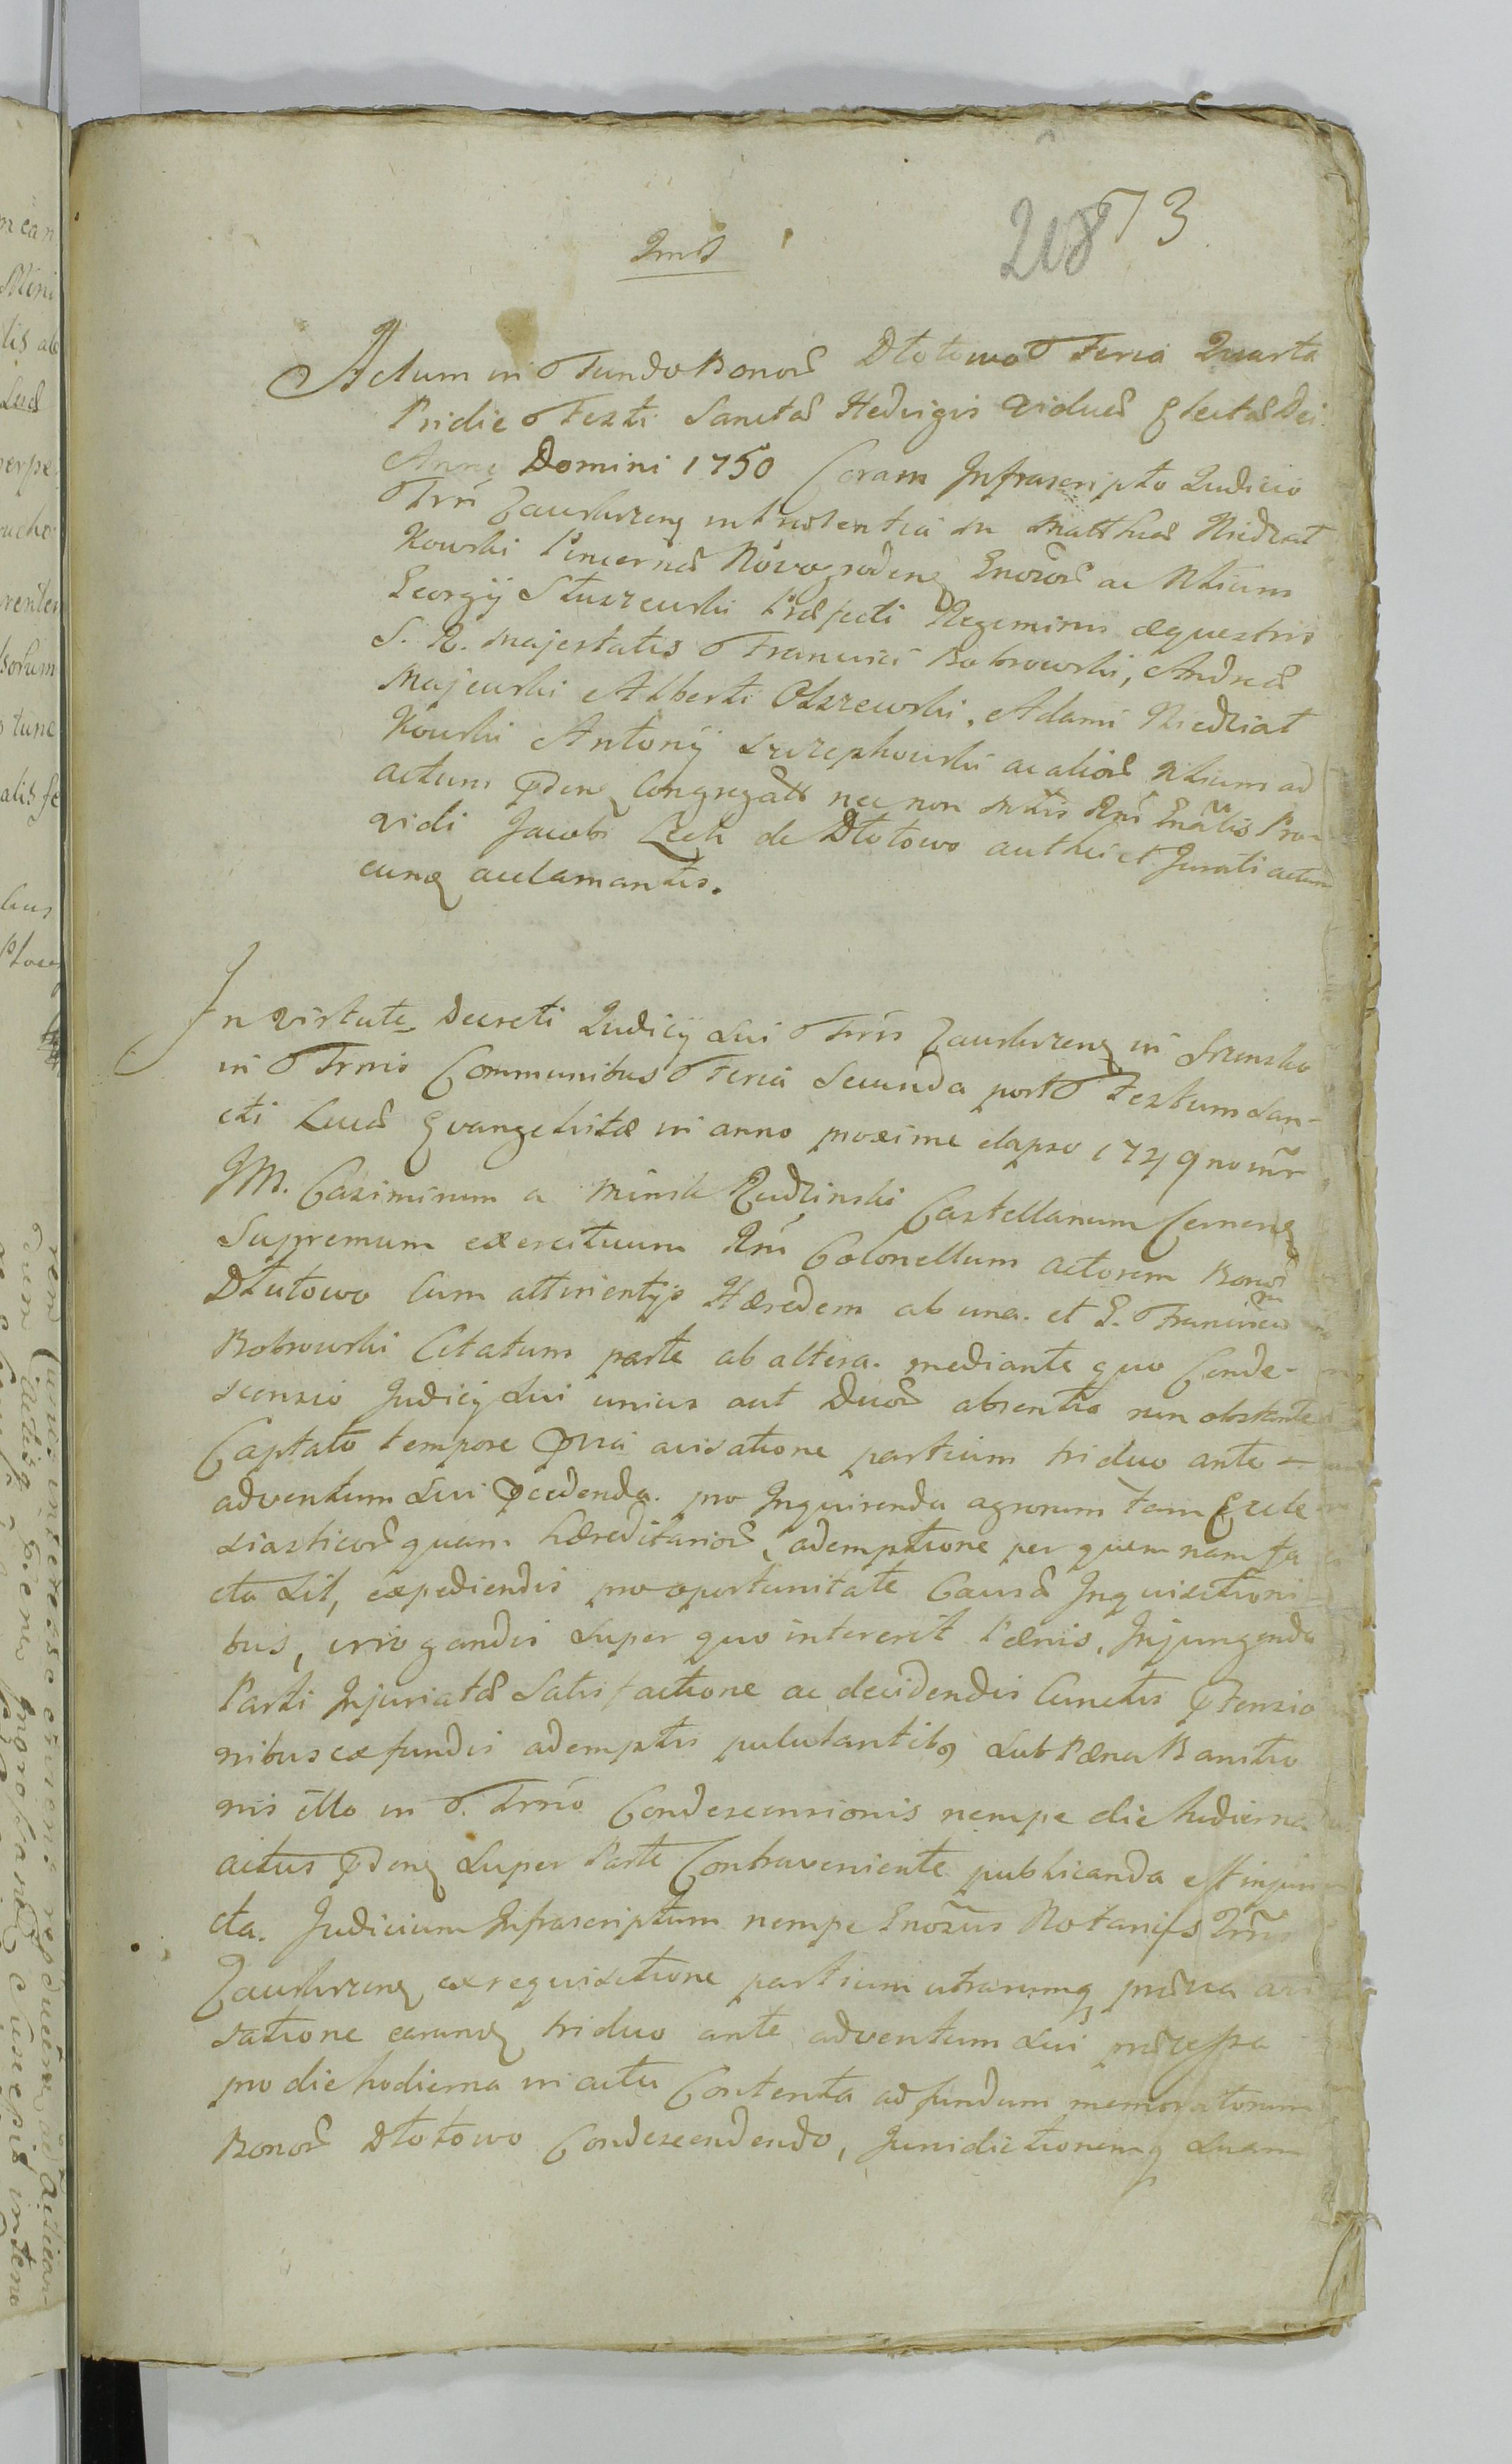 208 73
Actum in Fundo Bonor Dłotowo Feria Quarta
Pridie Festi Sanctæ Hedvigis Viduæ Electæ Dei
Anno Domini 1750 Coram Infrascripto Judicio
Trri Zawskrzen in Prӕsentia M Matthæi Niedział
kowski Pincernæ Novogroden Gnosor ac Nbium
Georgij Słuszewski Præfecti Regiminis æquestris
S. R. Majestatis Francisci Bobrowski, Andreæ
Majewski Alberti Olszewski, Adami Niedział
kowski Antonij Szczepkowski ac alior Nbium ad
actum pden Congregator nec non Mtris Rni Gnãlis Pro-
vidi Jacobi Lech de Dłotowo authei et Jurati actum
cunq acclamantis.
In virtute Decreti Judicij Sui Trris Zawskrzen in Szrensko
in Trmis Communibus Feria Secunda post Festum San-
cti Lucæ Evangelistæ in anno proxime elapso 1749 no inter
JM. Casimirum a Minsk Rudzinski Castellanum Cernen
Supremum exercituum Rni Colonellum actorem Bonor
Dłutowo Cum attinentijs Hæredem ab una. et G. Franciscum
Bobrowski Citatum parte ab altera. mediante quo Conde-
scensio Judicij Sui unius aut Duor absentia non obstante
Captato tempore prvia avisatione partium triduo ante
adventum Sui pcedenda. pro Inquirenda agrorum tam Eccle
siasticor quam hæreditarior, ademptione per quem nam fa
cta sit, expediendis pro oportunitate Causæ Inquisitioni-
bus, irrogandis super quo intererit Pænis, Injungenda
Parti Injuriatæ Satisfactione ac decidendis Cunctis ptensio
nibus ex fundis ademptis pululantibq sub Pæna Banitio
nis illo in Trmo Condescensionis nempe die hodierna
actus pden super Parte Contraveniente publicanda est injun
cta. Judicium Infrascriptum nempe Gnosus Notarius Trris
Zawskrzen ex requisitione partium utrarumq prævia avi
satione earunq triduo ante adventum Sui præcessa
pro die hodierna in actu Contenta ad fundum memoratorum
Bonor Dłotowo Condescendendo, Jurisdictionemq Suam